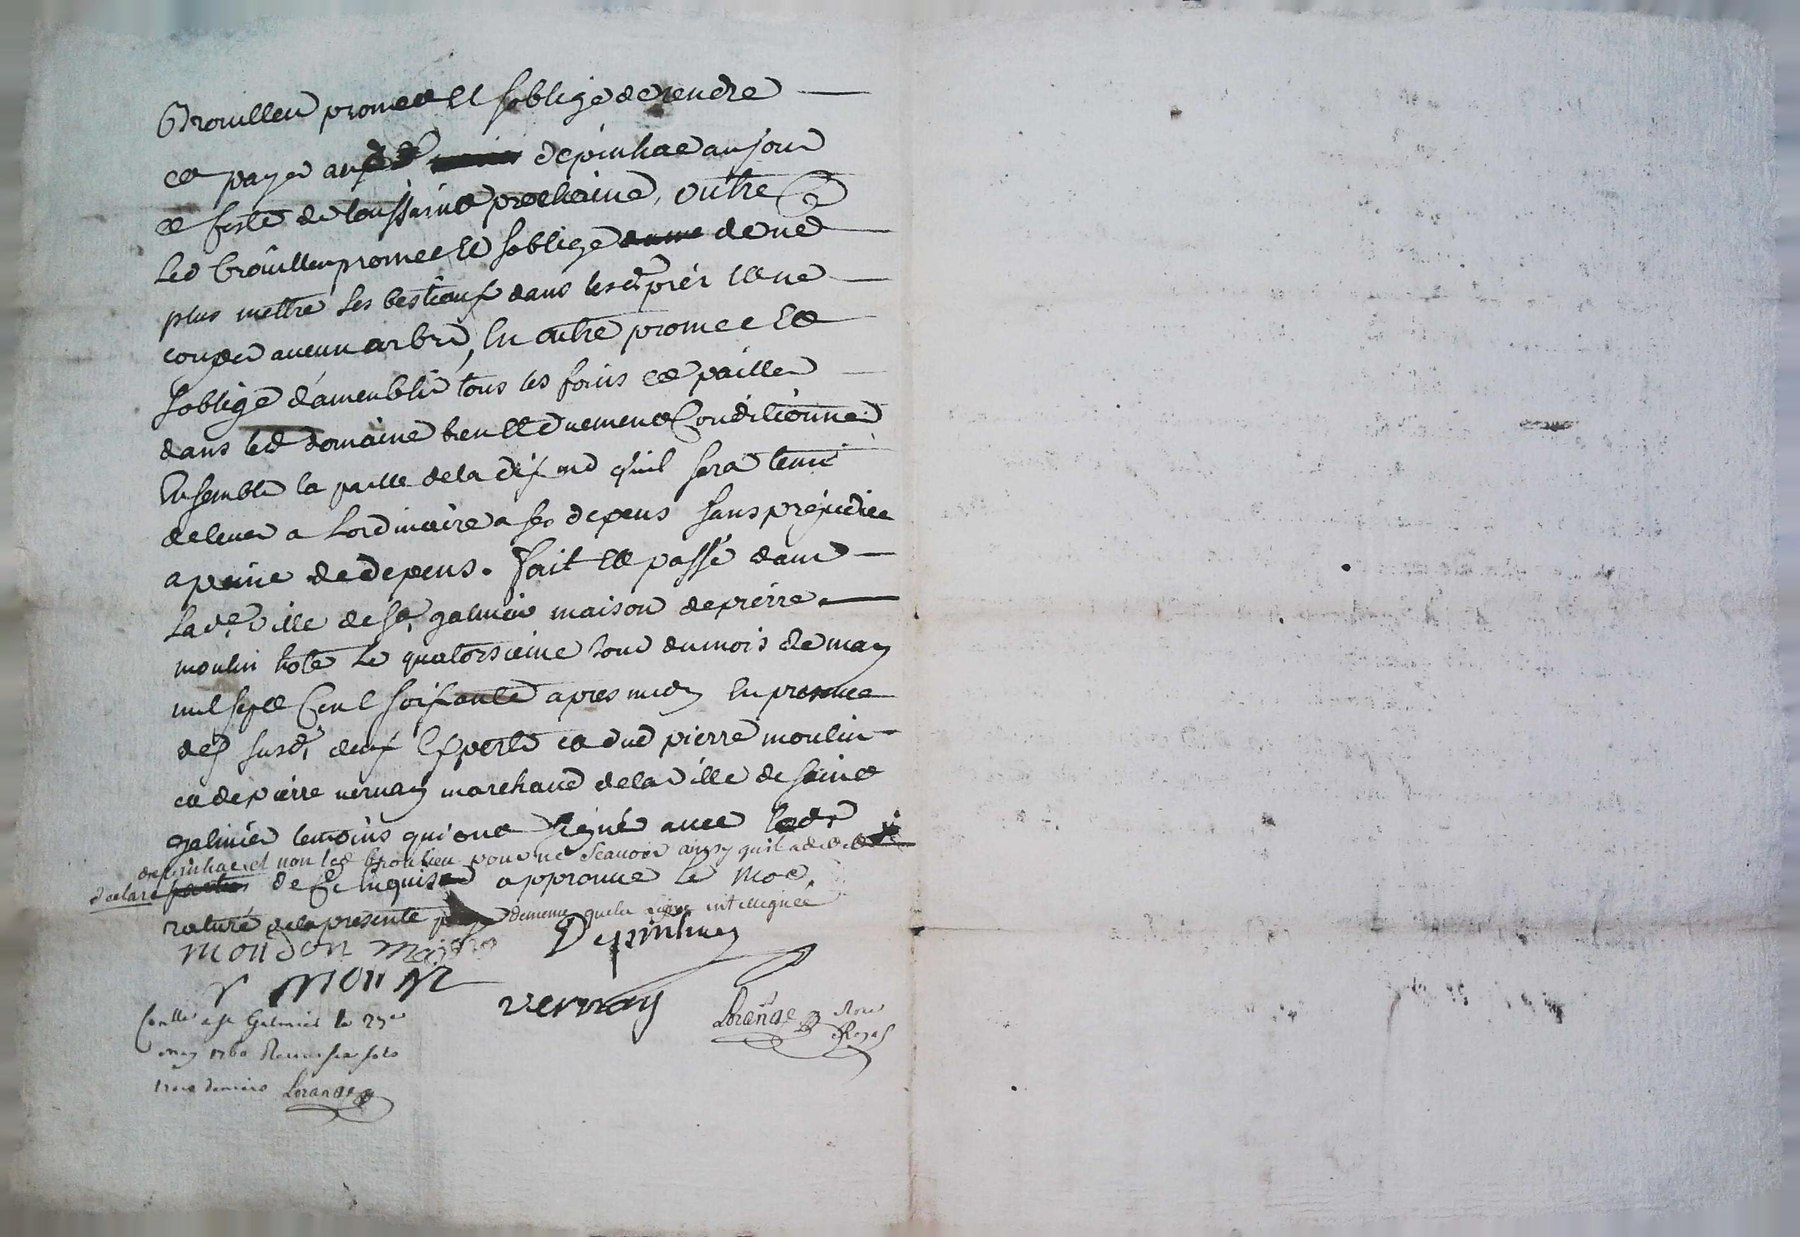 Brouilleu promet Et soblige de rendre
et payer aud Sr depinhac au jour
et feste de toussaint prochaine, outre ce
led brouilleu promet Et soblige de ne
plus mettre ses bestiaux dans lesd. prés Et ne
couper aucun arbre, En outre promet Et
soblige d'ameublir tous les foins et pailles
dans led domaine bien Et duement Conditionné
Ensemble la paille de la dixme quil sera tenu
de lever a Lordinaire a ses depens sans prejudice
a peine de depens. fait Et passé dans
lade. ville de St. galmier maison de pierre
moulin hote Le quatorsieme Jour du mois de may
mil sept Cent soixante apres midy En presence
des susd. deux Experts et dud pierre moulin
et de pierre vernay marchand de la ville de saint
galmier temoins qui ont signé avec led sr
depinhac et non led brouilleu pour ne scavoir ainsy quil a
declaré de ce Enquis approuve le mot
raturé de la presente de meme que la ligne
moudon
Depinhac
moulin
vernay
Lorange Nore Royal
Conllé a St Galmier le 27e
may 1760 Receu six sols
trois deniers Lorange